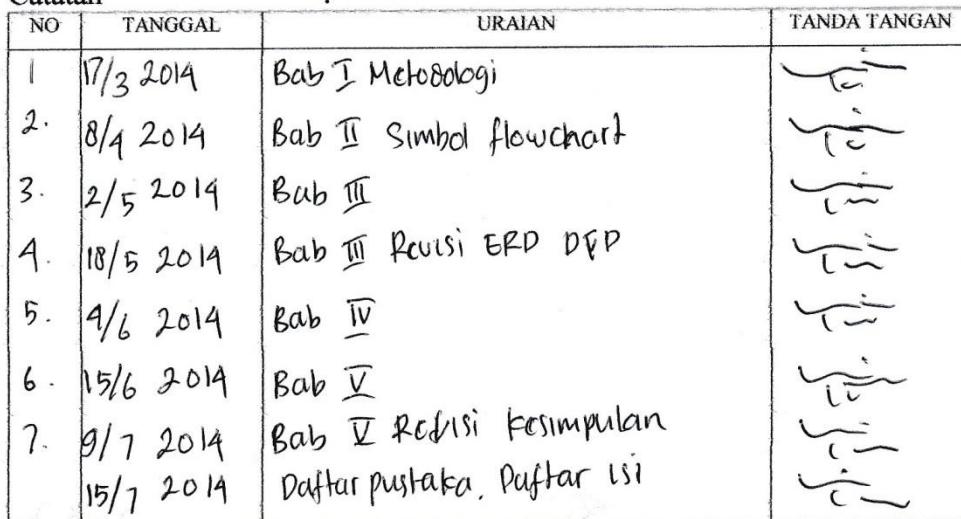 NO TANGGAL URAIAN TANDA TANGAN
1 17/3 2014 Bab I Metodologi
2. 8/4 2014 Bab II Simbol flowchart
3. 2/5 2014 Bab III
4. 18/5 2014 Bab III Revisi ERD DFD
5. 4/6 2014 Bab IV
6. 15/6 2014 Bab V
7. 9/7 2014 Bab V Revisi Kesimpulan
15/7 2014 Daftar pustaka, Daftar isi